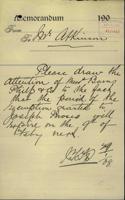 Memorandum 190
From
To Mr Atkinson
Please draw the
attention of
Philp & Co to the fact
that the period of the
exemption granted to
Joseph Moses will
expire on the 9th of
next.